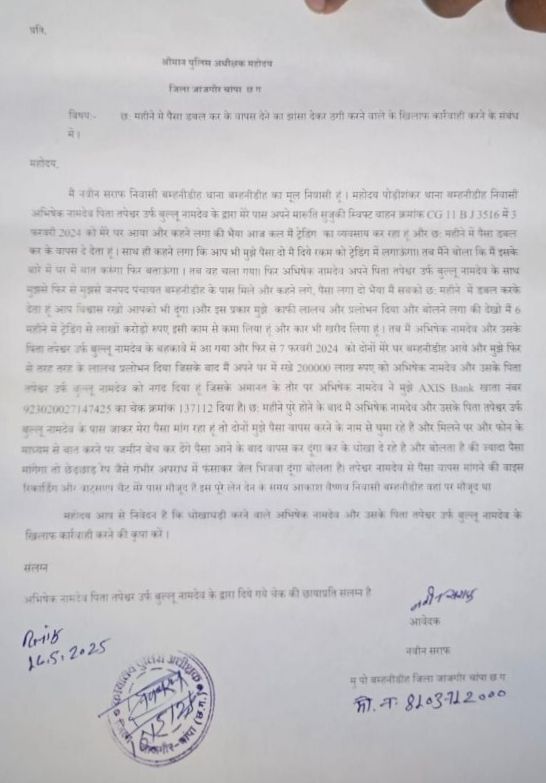 प्रति,
श्रीमान पुलिस अधीक्षक महोदय
जिला जांजगीर चांपा छ ग
विषय:- छ: महीने में पैसा डबल कर के वापस देने का झांसा देकर ठगी करने वाले के खिलाफ कार्रवाही करने के संबंध
में।
महोदय,
मैं नवीन सराफ निवासी बम्हनीडीह थाना बम्हनीडीह का मूल निवासी हूं । महोदय पोड़ीशंकर थाना बम्हनीडीह निवासी
अभिषेक नामदेव पिता तपेश्वर उर्फ बुल्लू नामदेव के द्वारा मेरे पास अपने मारुति सुजुकी स्विफ्ट वाहन क्रमांक CG 11 B J 3516 में 3
फरवरी 2024 को मेरे घर आया और कहने लगा की भैया आज कल मैं ट्रेडिंग का व्यवसाय कर रहा हूं और छ: महीने में पैसा डबल
कर के वापस दे देता हूं । साथ ही कहने लगा कि आप भी मुझे पैसा दो मैं दिये रकम को ट्रेडिंग में लगाऊंगा। तब मैंने बोला कि मैं इसके
बारे में घर में बात करूंगा फिर बताऊंगा । तब वह चला गया। फिर अभिषेक नामदेव अपने पिता तपेश्वर उर्फ बुल्लू नामदेव के साथ
मुझसे फिर से मुझसे जनपद पंचायत बम्हनीडीह के पास मिले और कहने लगे, पैसा लगा दो भैया मैं सबको छ: महीने में डबल करके
देता हूं आप विश्वास रखो आपको भी दूंगा ।और इस प्रकार मुझे काफी लालच और प्रलोभन दिया और बोलने लगा की देखो मैं 6
महीने में ट्रेडिंग से लाखों करोड़ो रुपए इसी काम से कमा लिया हूं और कार भी खरीद लिया हूं । तब मैं अभिषेक नामदेव और उसके
पिता तपेश्वर उर्फ बुल्लू नामदेव के बहकावे में आ गया और फिर से 7 फरवरी 2024 को दोनों मेरे घर बम्हनीडीह आये और मुझे फिर
से तरह तरह के लालच प्रलोभन दिया जिसके बाद मैं अपने घर में रखे 200000 लाख रुपए को अभिषेक नामदेव और उसके पिता
तपेश्वर उर्फ बुल्लू नामदेव को नगद दिया हूं जिसके अमानत के तौर पर अभिषेक नामदेव ने मुझे AXIS Bank खाता नंबर
923020027147425 का चेक क्रमांक 137112 दिया है। छ: महीने पूरे होने के बाद मैं अभिषेक नामदेव और उसके पिता तपेश्वर उर्फ
बुल्लू नामदेव के पास जाकर मेरा पैसा मांग रहा हूं तो दोनों मुझे पैसा वापस करने के नाम से घुमा रहे हैं और मिलने पर और फोन के
माध्यम से बात करने पर जमीन बेच कर देंगे पैसा आने के बाद वापस कर दूंगा कर के धोखा दे रहे है और बोलता है की ज्यादा पैसा
मांगेगा तो छेड़छाड़ रेप जैसे गंभीर अपराध में फंसाकर जेल भिजवा दूंगा बोलता है। तपेश्वर नामदेव से पैसा वापस मांगने की वाइस
रिकार्डिंग और वाट्सएप चैट मेरे पास मौजूद है इस पूरे लेन देन के समय आकाश वैष्णव निवासी बम्हनीडीह वहां पर मौजूद था
महोदय आप से निवेदन है कि धोखाधड़ी करने वाले अभिषेक नामदेव और उसके पिता तपेश्वर उर्फ बुल्लू नामदेव के
खिलाफ कार्रवाही करने की कृपा करें ।
संलग्न
अभिषेक नामदेव पिता तपेश्वर उर्फ बुल्लू नामदेव के द्वारा दिये गये चेक की छायाप्रति संलग्न है
नवीन सराफ
आवेदक
दिनांक
16.5.2025
नवीन सराफ
मु पो बम्हनीडीह जिला जांजगीर चांपा छ ग
मो. नं. 8103712000
कार्यालय पुलिस अधीक्षक
जिला जांजगीर-चांपा (छ.ग.)